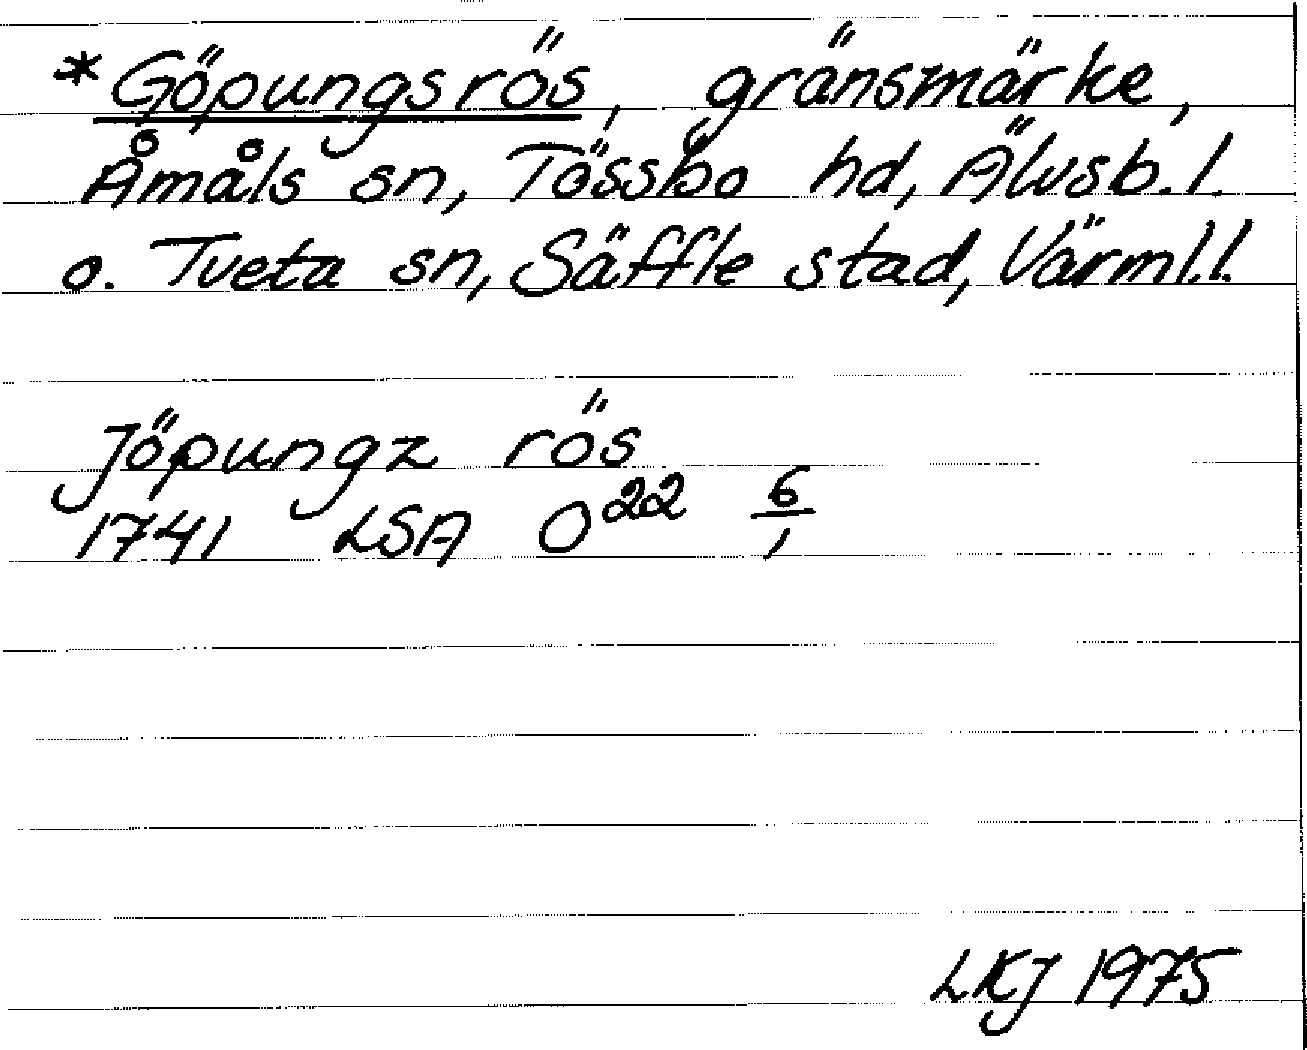 *Göpungsrös, gränsmärke,
Åmåls sn, Tössbo hd, Älvsb. l.
o. Tveta sn, Säffle stad, Värml.l.
Jöpungz rös
1741 LSA O²² 6/1
LKJ 1975